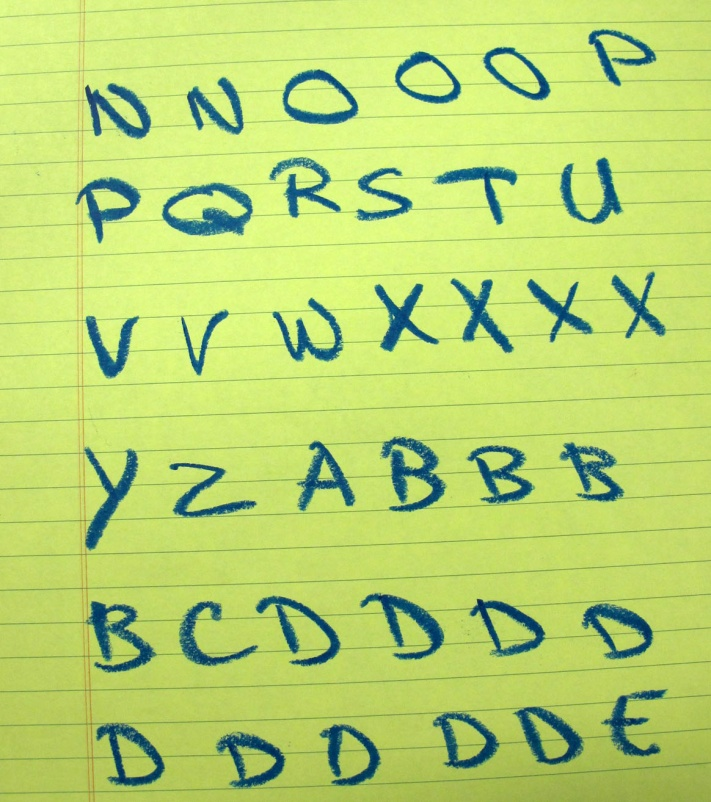 N N O O O P
P Q R S T U
V V W X X X X
Y Z A B B B
B C D D D D
D D D D D E